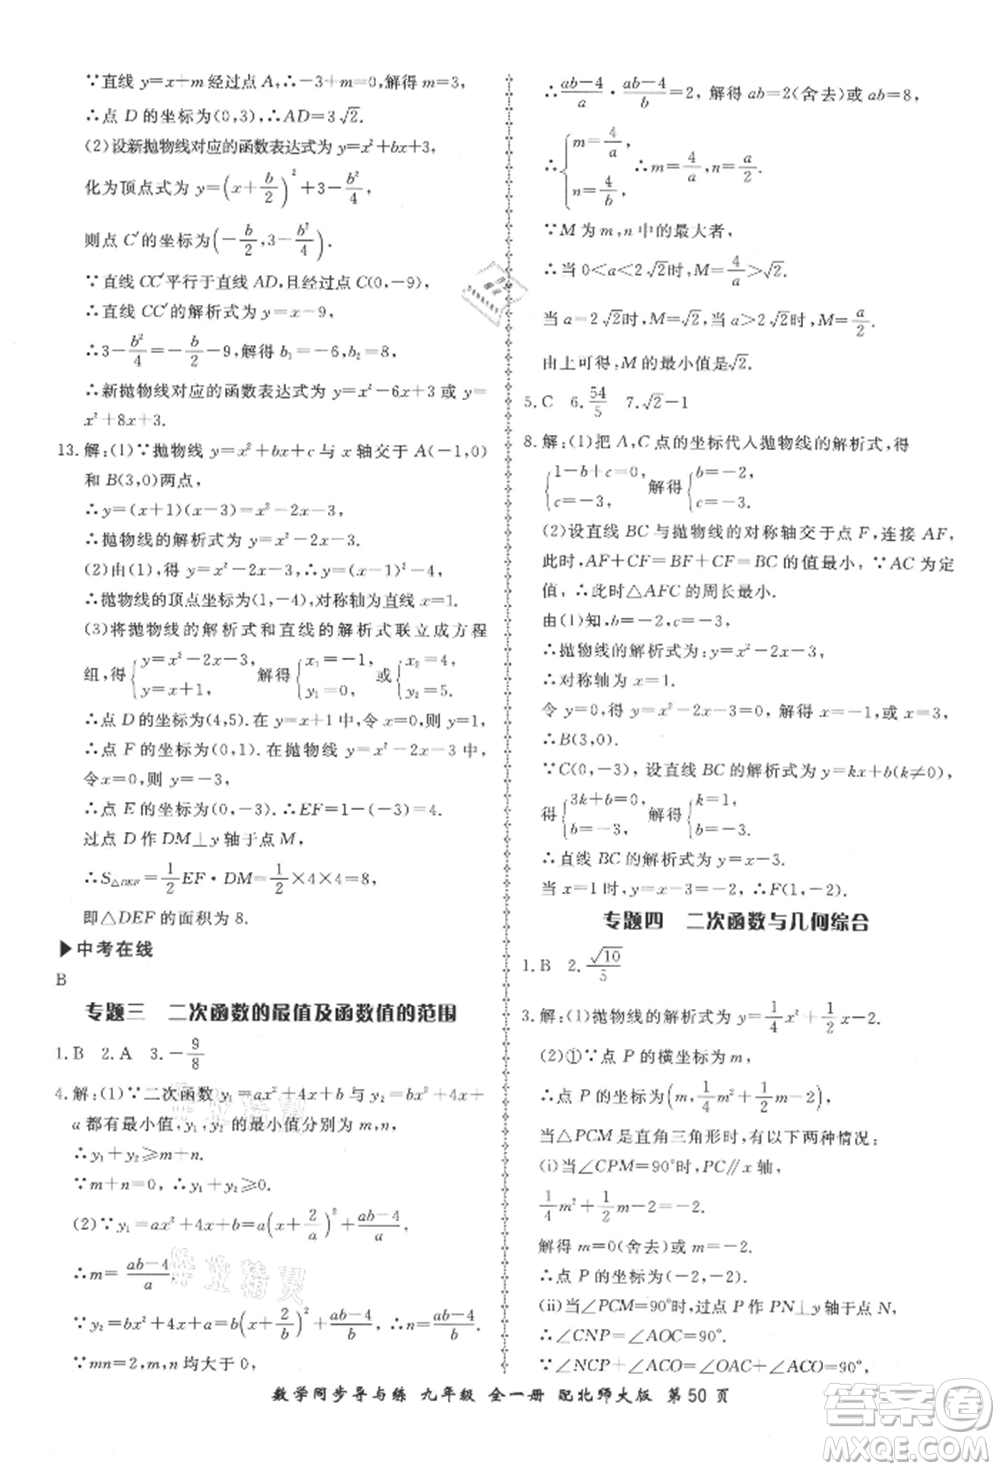 ∵直线 y=x+m 经过点 A,∴-3+m=0,解得 m=3,
∴点 D 的坐标为(0,3),∴AD=3√2.
(2)设新抛物线对应的函数表达式为 y=x²+bx+3,
化为顶点式为 y=(x+b/2)²+3-b²/4,
则点 C′的坐标为(-b/2,3-b²/4),
∵直线 CC′平行于直线 AD,且经过点 C(0,-9),
∴直线 CC′的解析式为 y=x-9,
∴3-b²/4=-b/2-9,解得 b₁=-6,b₂=8,
∴新抛物线对应的函数表达式为 y=x²-6x+3 或 y=
x²+8x+3.
13.解:(1)∵抛物线 y=x²+bx+c 与 x 轴交于 A(-1,0)
和 B(3,0)两点,
∴y=(x+1)(x-3)=x²-2x-3,
∴抛物线的解析式为 y=x²-2x-3.
(2)由(1),得 y=x²-2x-3,
∴抛物线的顶点坐标为(1,-4),对称轴为直线 x=1.
(3)将抛物线的解析式和直线的解析式联立成方程
组,得{y=x²-2x-3, y=x+1, 解得{x₁=-1, y₁=0, 或{x₂=4, y₂=5,
∴点 D 的坐标为(4,5).在 y=x+1 中,令 x=0,得 y=1,
∴点 F 的坐标为(0,1).在抛物线 y=x²-2x-3 中,
令x=0,得 y=-3,
∴点 E 的坐标为(0,-3).∴EF=1-(-3)=4.
过点 D 作 DM⊥y 轴于点 M,
∴S△DEF=1/2 EF·DM=1/2×4×4=8,
即△DEF 的面积为 8.
▶中考在线
B
专题三 二次函数的最值及函数值的范围
1.B 2.A 3.-9/8
4.解:(1)∵二次函数 y₁=ax²+4x+b 与 y₂=bx²+4x+
a 都有最小值,y₁,y₂ 的最小值分别为 m,n,
∴y₁+y₂≥m+n.
∵m+n=0,∴y₁+y₂≥0.
(2)∵y₁=ax²+4x+b=a(x+2/a)²+(ab-4)/a,
∴m=(ab-4)/a,
∵y₂=bx²+4x+a=b(x+2/b)²+(ab-4)/b,∴n=(ab-4)/b,
∵mn=2,m,n 均大于 0,
∴(ab-4)/a·(ab-4)/b=2,解得 ab=2(舍去)或ab=8,
∴{m=4/a, n=4/b, ∴m=4/a,n=a/2.
∵M 为 m,n 中的最大者,
∴当 0<a<2√2时,M=4/a>√2,
当 a=2√2时,M=√2,当 a>2√2时,M=a/2>√2.
由上可得,M 的最小值是√2.
5.C 6.54/5 7.√2-1
8.解:(1)把 A,C 点的坐标代入抛物线的解析式,得
{1-b+c=0, c=-3, 解得{b=-2, c=-3.
(2)设直线 BC 与抛物线的对称轴交于点 F,连接 AF,
此时,AF+CF=BF+CF=BC 的值最小.∵AC 为定
值,∴此时△AFC 的周长最小.
由(1)知,b=-2,c=-3,
∴抛物线的解析式为 y=x²-2x-3,
∴对称轴为 x=1.
令 y=0,得 x²-2x-3=0,解得 x=-1,或 x=3,
∴B(3,0).
∵C(0,-3),设直线 BC的解析式为 y=kx+b(k≠0),
得{3k+b=0, b=-3, 解得{k=1, b=-3.
∴直线 BC 的解析式为 y=x-3,
当 x=1 时,y=-2,∴F(1,-2).
专题四 二次函数与几何综合
1.B 2.√10/5
3.解:(1)抛物线的解析式为 y=1/4x²+1/2x-2.
(2)①∵点 P 的横坐标为 m,
∴点 P 的坐标为(m,1/4m²+1/2m-2),
当△PCM 是直角三角形时,有以下两种情况:
(i)当∠CPM=90°时,PC∥x 轴,
1/4m²+1/2m-2=-2,
解得 m=0(舍去)或 m=-2.
∴点 P 的坐标为(-2,-2);
(ii)当∠PCM=90°时,过点 P 作 PN⊥y 轴于点 N,
∴∠CNP=∠AOC=90°.
∵∠NCP+∠ACO=∠OAC+∠ACO=90°,
数学同步导与练 九年级 全一册 配北师大版 第50页
答案圈
MXQE.COM